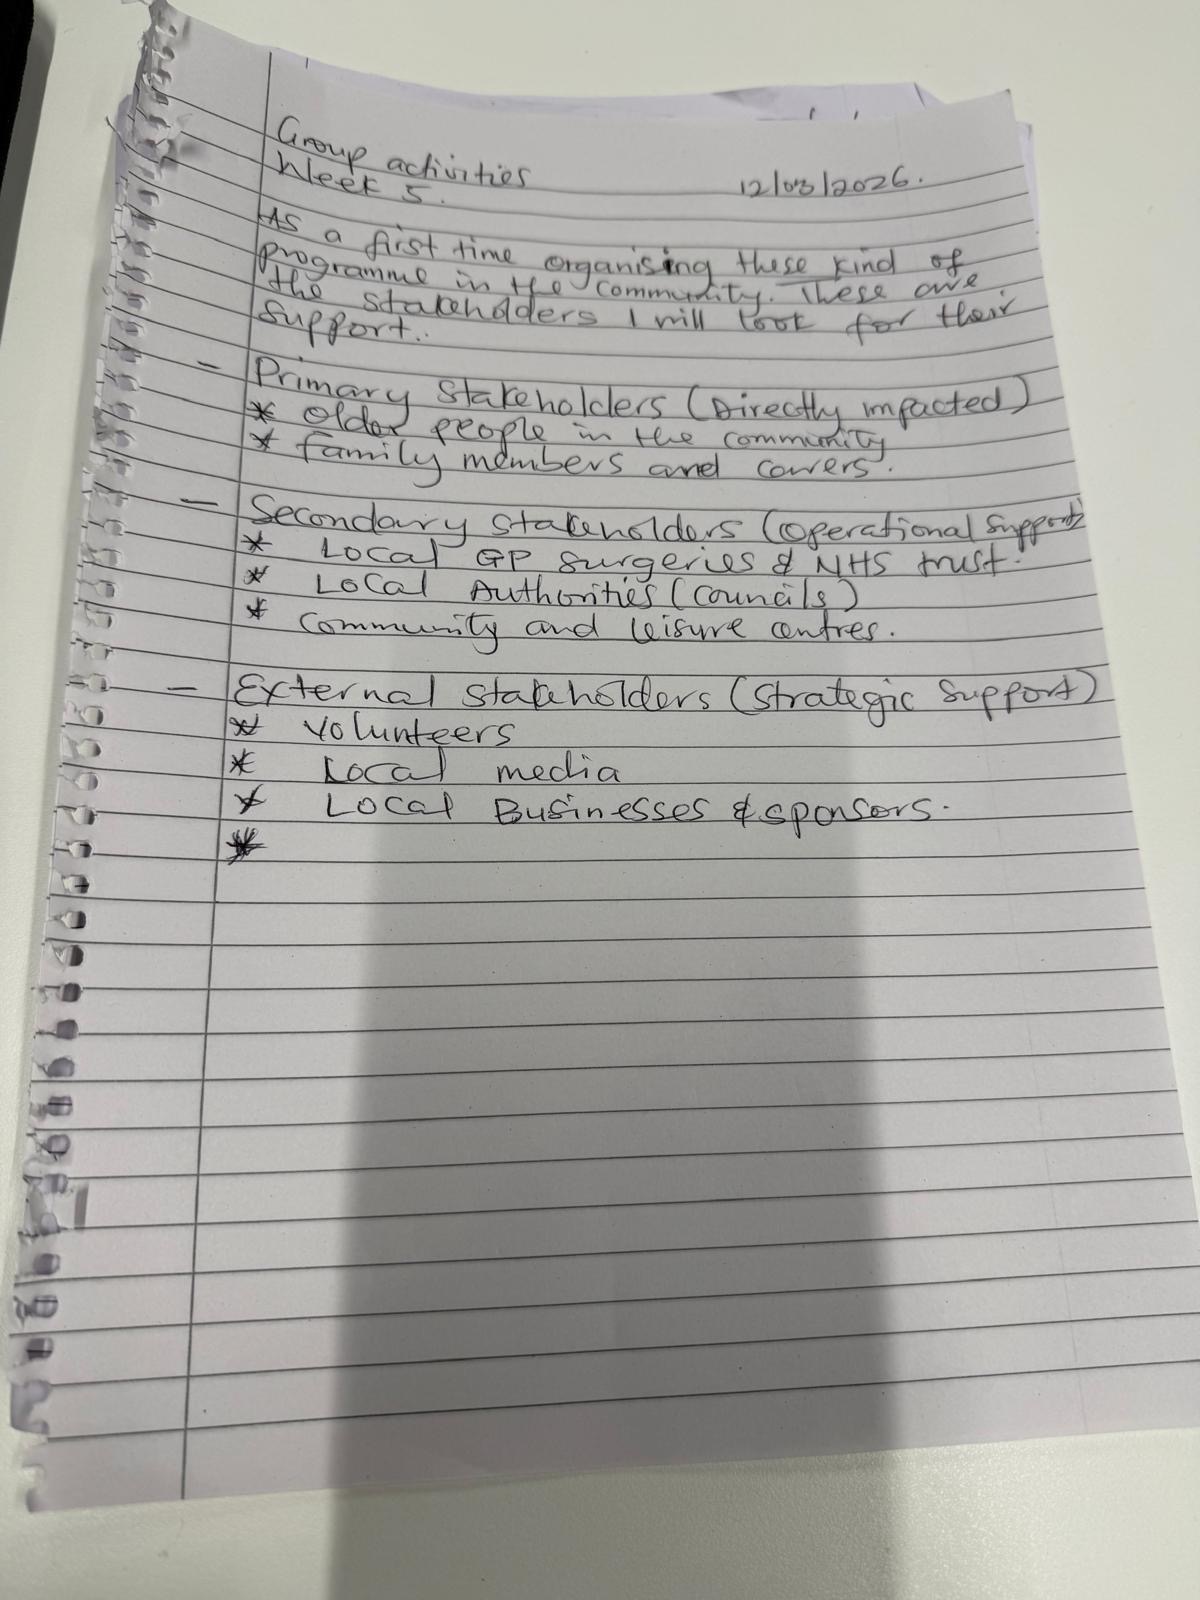 Group activities
Week 5. 12/03/2026.
As a first time organising these kind of
programme in the community. These are
the stakeholders I will look for their
support..
- Primary Stakeholders (Directly impacted)
* older people in the community
* family members and carers.
- Secondary stakeholders (Operational Support)
* Local GP surgeries & NHS trust.
* Local Authorities (Councils)
* Community and leisure centres.
- External Stakeholders (Strategic Support)
* Volunteers
* Local media
* Local Businesses & sponsors.
*